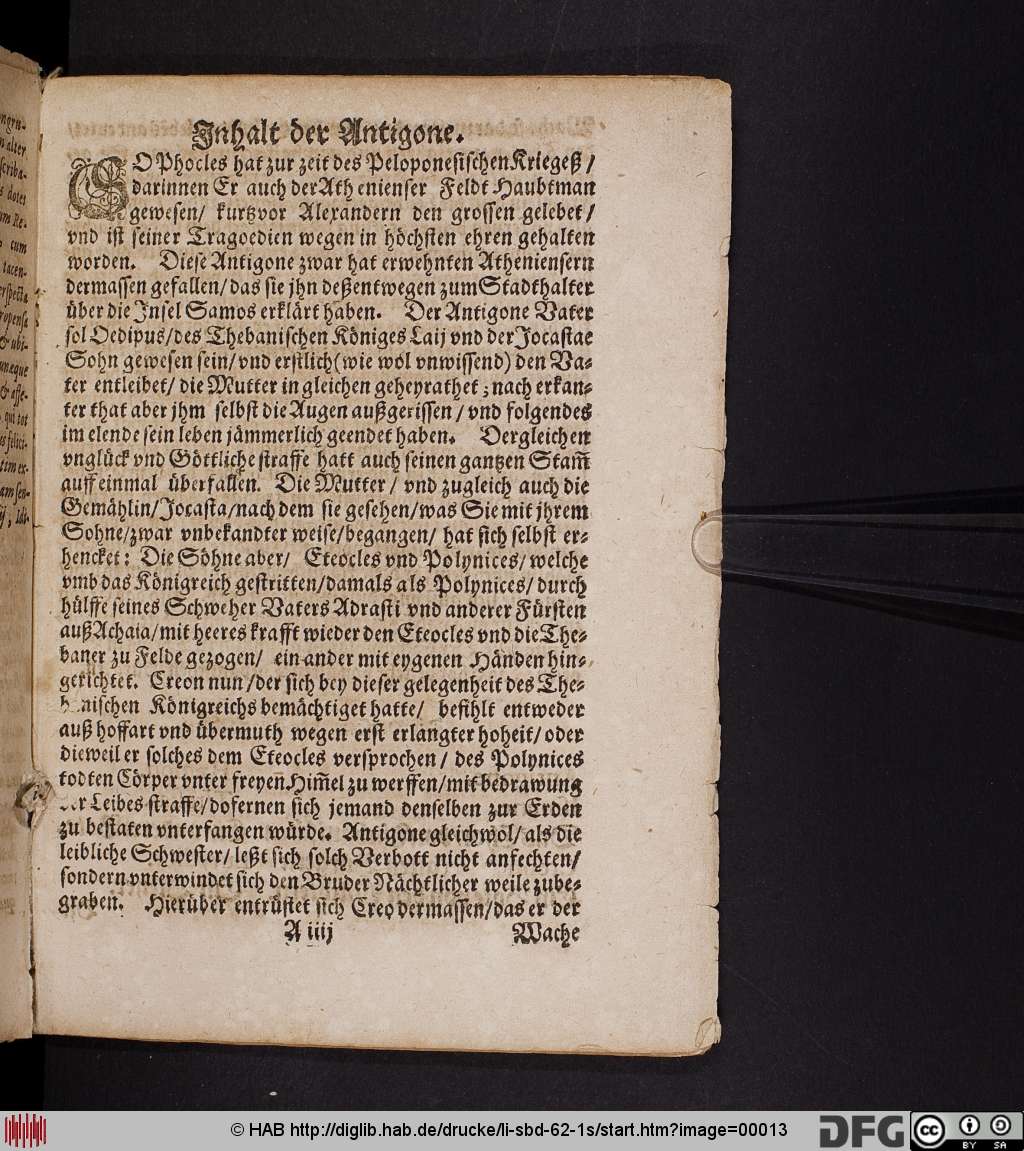 ngru-
n alter
scriba-
s dotes
um Re-
o cum
tacen-
erspecta
ropensa
& ubi-
unæque
& effe-
qui tot
felici-
tum ex-
am sen-
Inhalt der Antigone.
SOPhocles hat zur zeit des Peloponesischen Kriegeß /
darinnen Er auch der Athenienser Feldt Haubtman
gewesen/ kurtzvor Alexandern den grossen gelebet/
vnd ist seiner Tragoedien wegen in höchsten ehren gehalten
worden. Diese Antigone zwar hat erwehnten Atheniensern
dermassen gefallen/ das sie jhn deßentwegen zum Stadthalter
über die Insel Samos erklärt haben. Der Antigone Vater
sol Oedipus/ des Thebanischen Königes Laij vnd der Jocastae
Sohn gewesen sein/ vnd erstlich (wie wol vnwissend) den Va-
ter entleibet/ die Mutter in gleichen geheyrathet; nach erkan-
ter that aber jhm selbst die Augen außgerissen / vnd folgendes
im elende sein leben jämmerlich geendet haben. Dergleichen
vnglück vnd Göttliche straffe hatt auch seinen gantzen Stam̃
auff einmal überfallen. Die Mutter / vnd zugleich auch die
Gemählin/ Jocasta/ nach dem sie gesehen/ was Sie mit jhrem
Sohne/ zwar vnbekandter weise/ begangen/ hat sich selbst er-
hencket: Die Söhne aber/ Eteocles vnd Polynices/ welche
vmb das Königreich gestritten/ damals als Polynices/ durch
hülffe seines Schweher Vaters Adrasti vnd anderer Fürsten
auß Achaia/ mit heeres krafft wieder den Eteocles vnd die The-
baner zu Felde gezogen/ ein ander mit eygenen Händen hin-
gerichtet. Creon nun / der sich bey dieser gelegenheit des The-
banischen Königreichs bemächtiget hatte/ befihlt entweder
auß hoffart vnd übermuth wegen erst erlangter hoheit/ oder
dieweil er solches dem Eteocles versprochen / des Polynices
todten Cörper vnter freyen̄ Him̃el zu werffen/ mit bedrawung
der Leibes straffe/ dofernen sich jemand denselben zur Erden
zu bestaten vnterfangen würde. Antigone gleichwol/ als die
leibliche Schwester/ leßt sich solch Verbott nicht anfechten/
sondern vnterwindet sich den Bruder Nächtlicher weile zube-
graben. Hierüber entrüstet sich Creo dermassen/ das er der
A iiij Wache
© HAB http://diglib.hab.de/drucke/li-sbd-62-1s/start.htm?image=00013
DFG
cc
BY SA